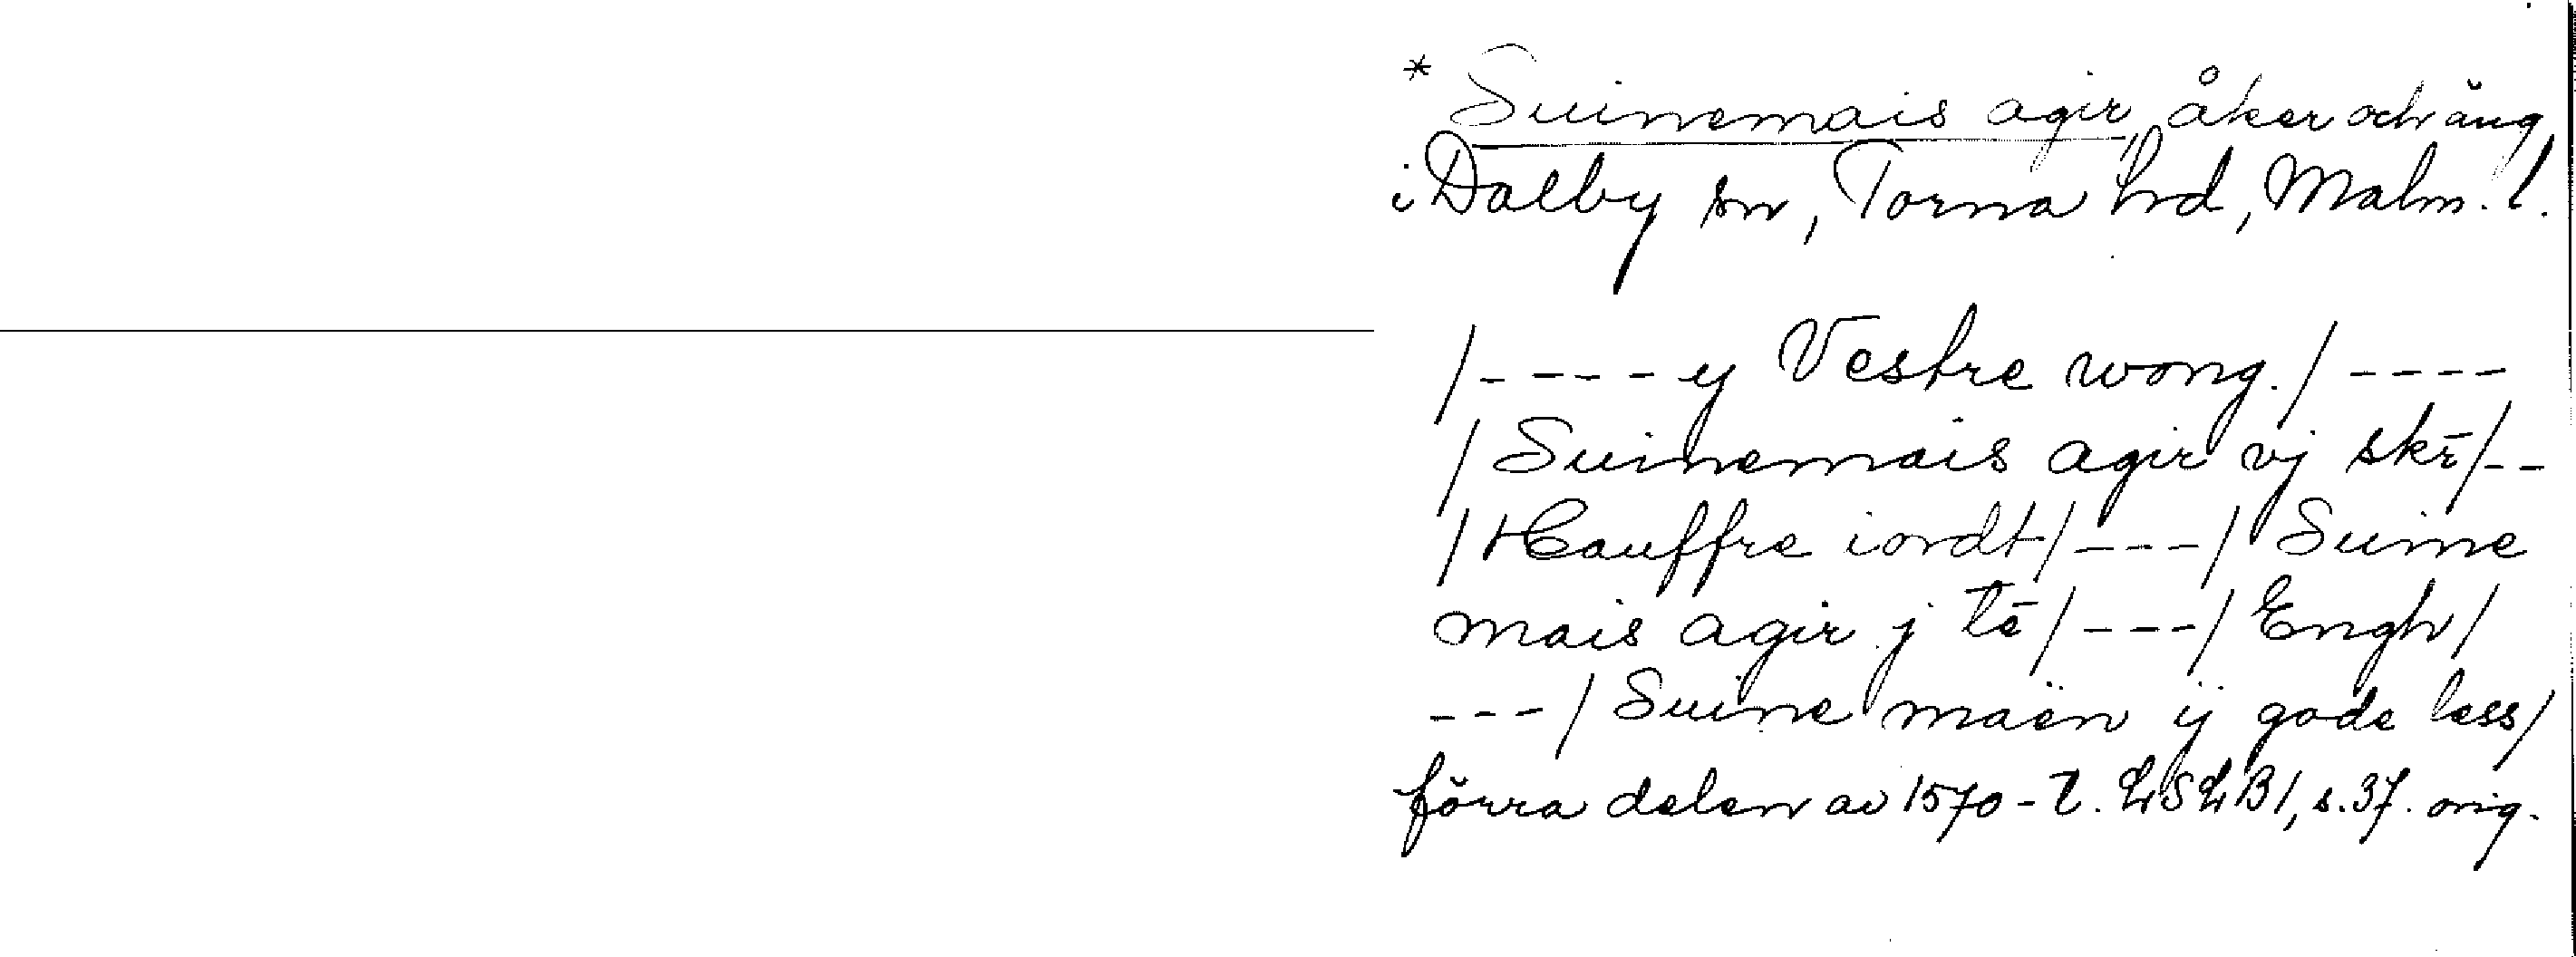 * Suinemais agir, åker och äng
i Dalby sn, Torna hd, Malm. l.
/ - - - - y Vestre wong. / - - - -
/ Suinemais agir vj skr̄ / - -
/ Hauffre iordt / - - - / Suine
mais agir j tē / - - - / Engh /
- - - / Suine maën ij gode less /
förra delen av 1570-t. LSLB 1, s. 37. orig.